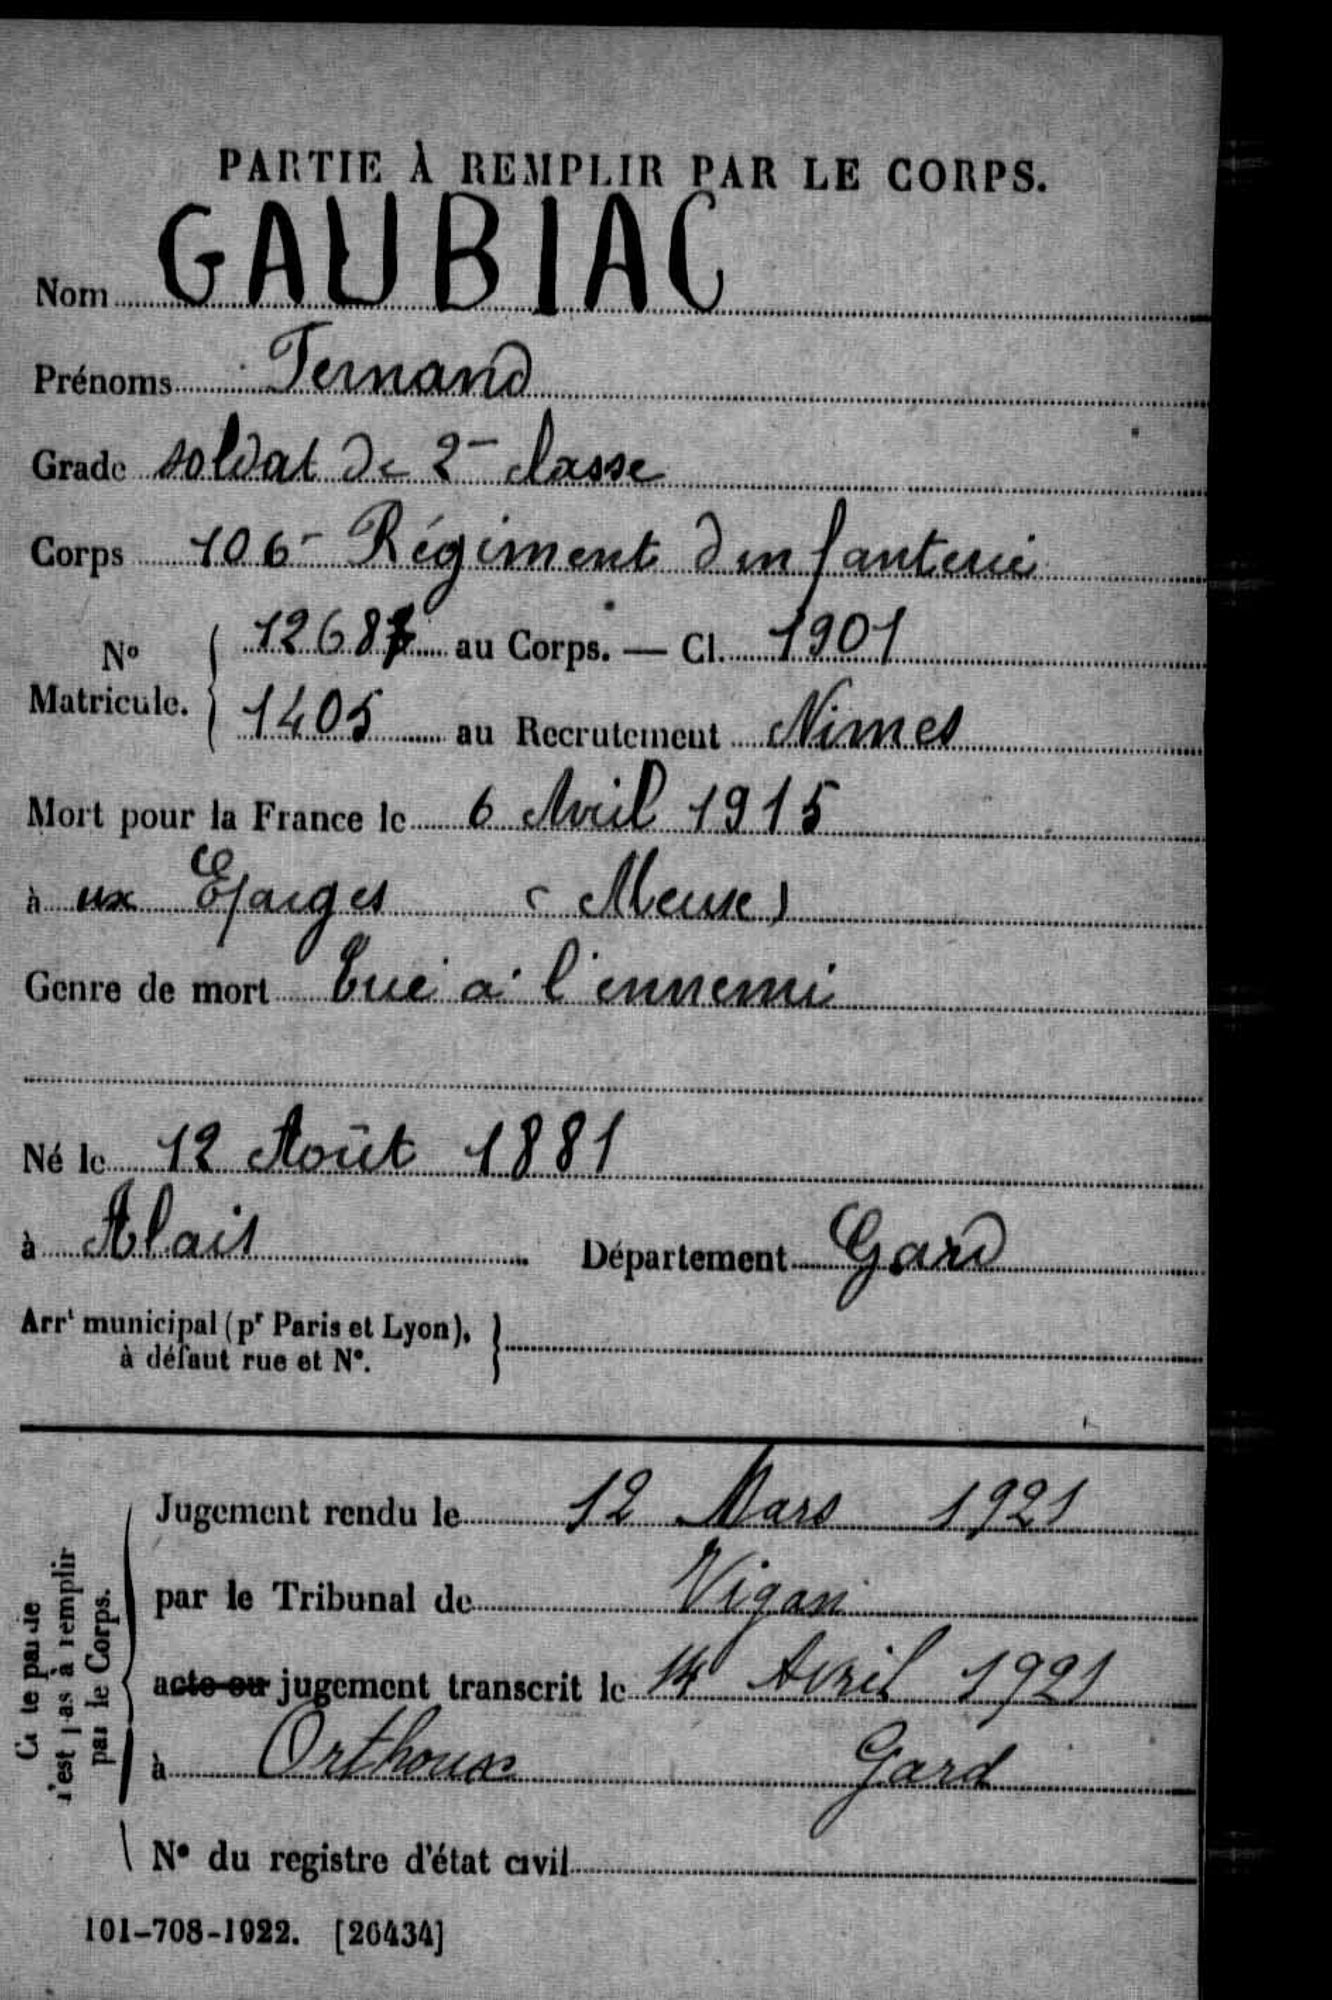 PARTIE À REMPLIR PAR LE CORPS.
Nom GAUBIAC
Prénoms Fernand
Grade soldat de 2e classe
Corps 106e Régiment d'infanterie
No Matricule. { au Corps. — Cl. 1901
1405 au Recrutement Nimes
Mort pour la France le 6 Avril 1915
à ux Eparges (Meuse)
Genre de mort Tué à l'ennemi
Né le 12 Août 1881
à Alais Département Gard
Arrt municipal (pr Paris et Lyon), }
à défaut rue et N°.
Jugement rendu le 12 Mars 1921
par le Tribunal de Vigan
acte ou jugement transcrit le 14 Avril 1921
à Orthoux Gard
N° du registre d'état civil
Cette partie
n'est pas à remplir
par le Corps.
101-708-1922. [26434]